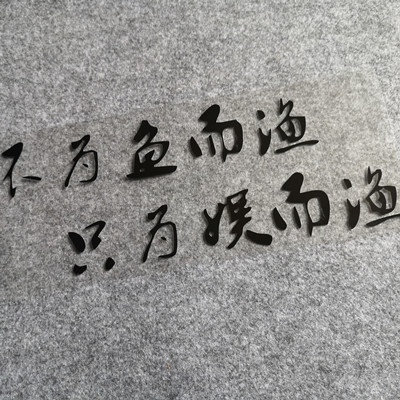 不为鱼而渔
只为娱而渔